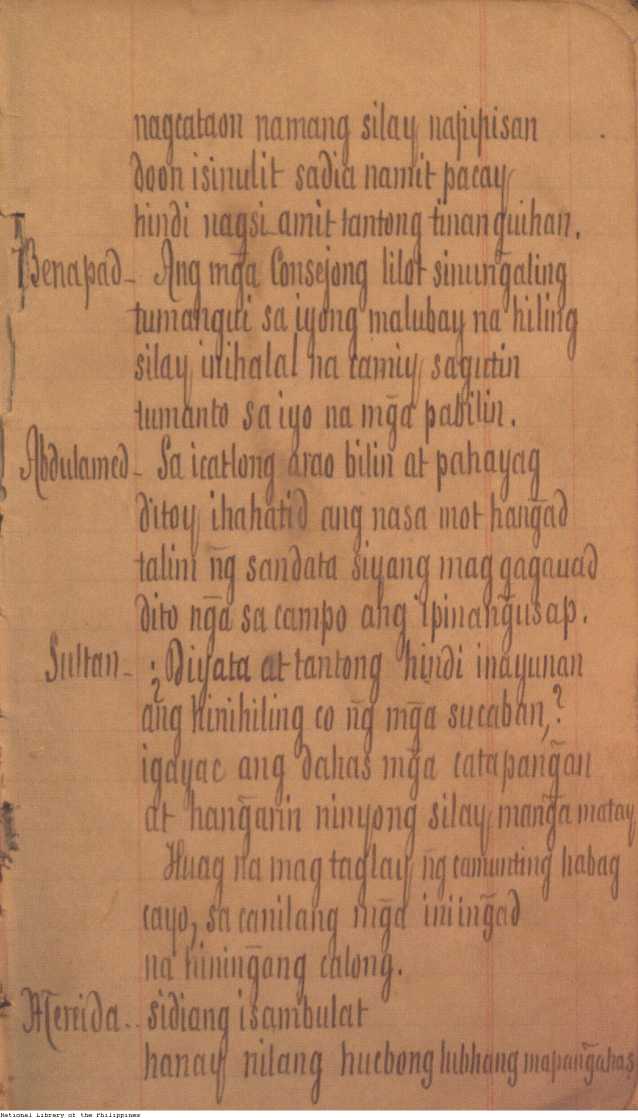 nagcataon namang silay napipisan
doon isinulit sadia namit pacay
hindi nagsi amit tantong tinanguihan.
Benapad- Ang mg̃a Consejong lilot sinung̃aling
tumangui sa iyong malubay na hiling
silay inihalal na camiy sagutin
tumanto sa iyo na mg̃a pabilin.
Abdulamed- Sa icatlong arao bilin at pahayag
ditoy ihahatid ang nasa mot hang̃ad
talim ñg sandata siyang mag gagauad
dito ng̃a sa campo ang ipinang̃usap.
Sultan- ¿Diyata at tantong hindi inayunan
ang hinihiling co ñg mg̃a sucaban,?
igayac ang dahas mg̃a catapang̃an
at hang̃arin ninyong silay mang̃a matay
Huag na mag taglay ñg camunting habag
cayo, sa canilang mg̃a iniing̃ad
na hining̃ang calong.
Mereida.. sidiang isambulat
hanay nilang hucbong lubhang mapang̃ahas
National Library of the Philippines